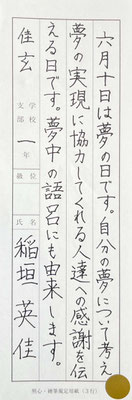 六月十日は夢の日です。自分の夢について考え
夢の実現に協力してくれる人達への感謝を伝
える日です。夢中の語呂にも由来します。
佳玄
学校
支部
一年
級位
氏名
稲垣英佳
硬筆規定用紙(3行)